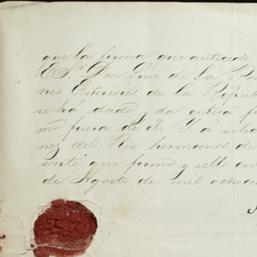 que la firma que antecede
E. S. Don Luis de la
nes Esteriores de la Repub
se há dado y da entera fe
mo fuera de el. Y á solic
nes del Rio, hermanos de
sente que firmo y sello en
de Agosto de mil ochoc